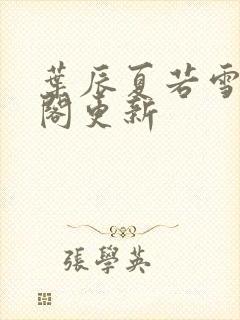 葉辰夏若雪
閣更新
張學英